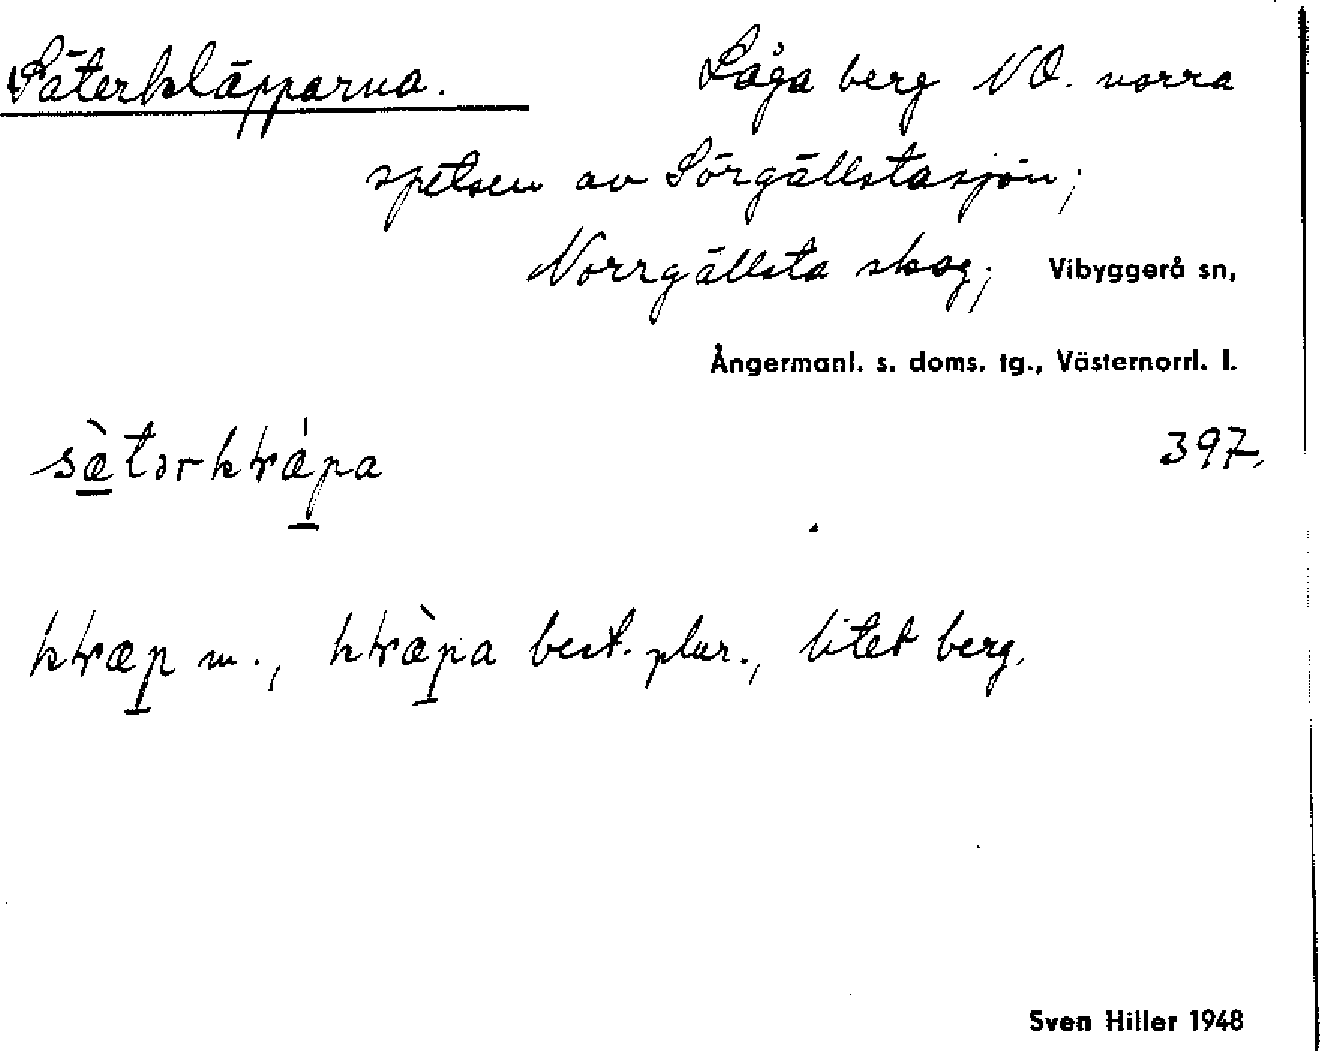 Säterkläpparna. Låga berg NO. norra
spetsen av Sörgällstasjön;
Norrgällsta skog; Vibyggerå sn,
Ångermanl. s. doms. tg., Västernorrl. l.
397.
m., best. plur., litet berg.
Sven Hiller 1948